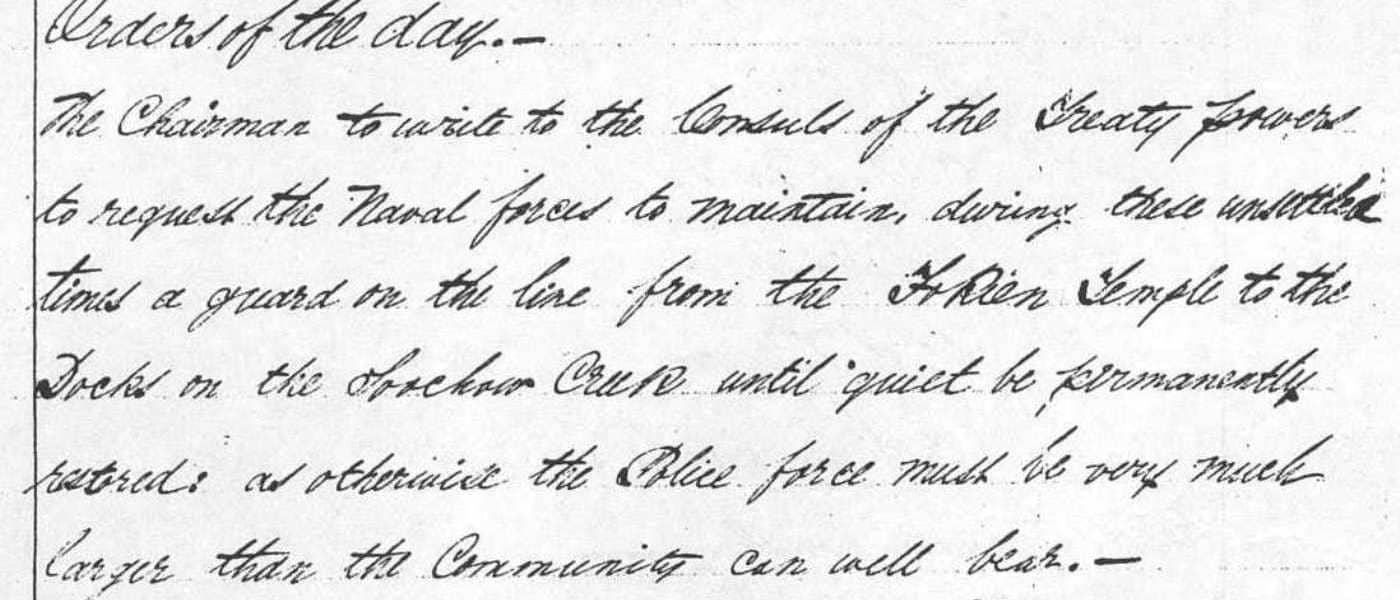 Orders of the day.—
The Chairman to write to the Consuls of the Treaty powers
to request the Naval forces to maintain, during these unsettled
times a guard on the line from the Fokien Temple to the
Docks on the Soochow Creek until quiet be permanently
restored: as otherwise the Police force must be very much
larger than the Community can well bear.—